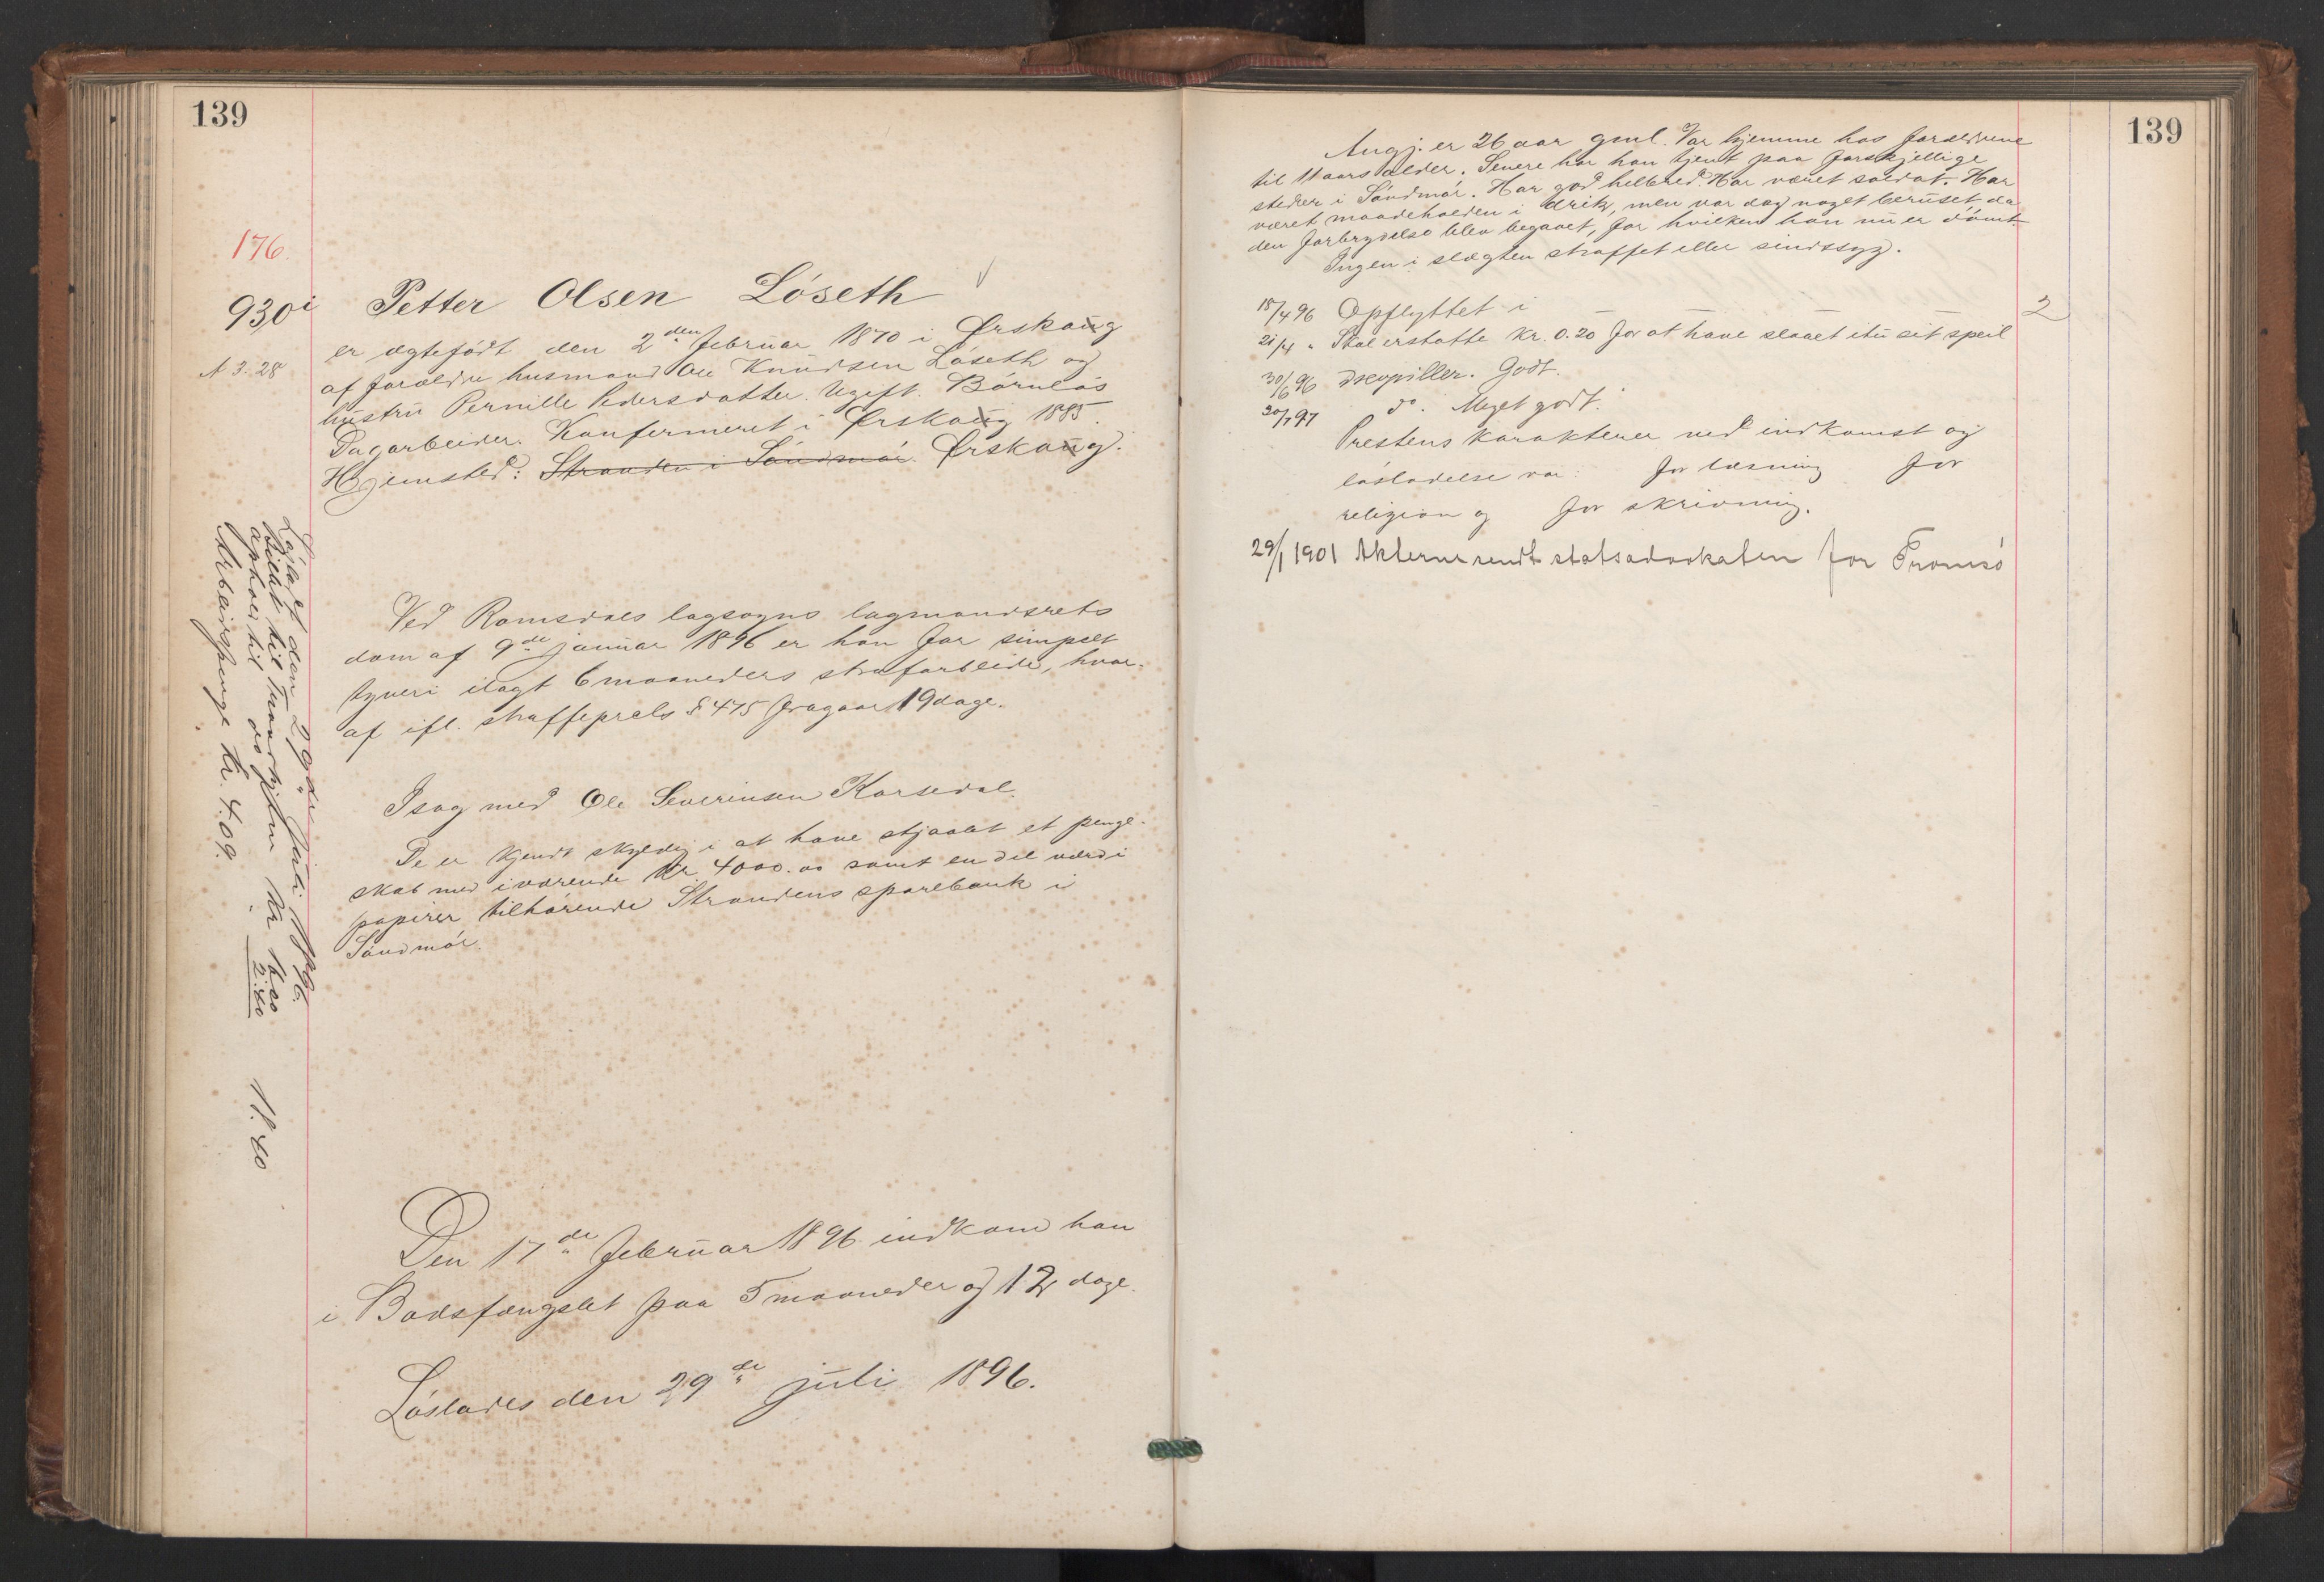 139
176
930i Petter Olsen Löseth
N 3.28
er ægtefödt den 2den februar 1870 i Ørskaug
af forældre husmand Ole Knudsen Löseth og
hustru Pernille Pedersdatter. Ugift. Börnlös
Dagarbeider. Konfermeret i Ørskaug 1885.
Hjemsted: Stranden i Söndmör. Ørskaug.
Ved Romsdals lagsogns lagmandsrets
dom af 9de januar 1896 er han for simpelt
tyveri ilagt 6 maaneders strafarbeide, hvor-
af ifl. straffeprcls § 475 fragaar 19 dage.
I sag med Ole Severinsen Korsedal.
De er kjendt skyldig i at have stjaalet et penge-
skab med iværende Kr. 4000.00 samt en del værdi
papirer tilhörende Strandens sparebank i
Söndmör.
Den 17de februar 1896 indkom han
i Bodsfængslet paa 5 maaneder og 12 dage.
Löslades den 29de juli 1896.
Lösladt den 29de juli 1896.
Billet til Trondhjem Kr 16.00
ophold til do 2.40
11.40
Arbeidspenge kr. 4.09.
139
Angj. er 26 aar gml. Var hjemme hos forældrene
til 11 aars alder. Senere har han tjent paa forskjellige
steder i Söndmör. Har god helbred. Har været soldat. Har
været maadeholden i drik, men var dog noget beruset, da
den forbrydelse blev begaaet, for hvilken han nu er dömt.
Ingen i slægten straffet eller sindssyg.
18/4 96 Opflyttet i 2
21/4 " Skal erstatte kr. 0.20 for at have slaaet itu sit speil
30/6 96 Drevpiller. Godt.
30/7 97 do. Meget godt.
Prestens karakterer ved indkomst og
lösladelse var: for læsning for
religion og for skrivning.
29/1 1901 Akterne sendt statsadvokaten for Tromsö